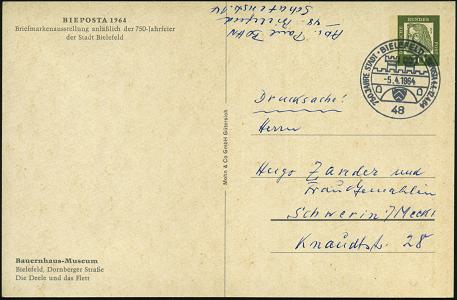 BIEPOSTA 1964
Briefmarkenausstellung anläßlich der 750-Jahrfeier
der Stadt Bielefeld
Abs. Paul
48 - Bielefeld
DEUTSCHE
BUNDESPOST
750 JAHRE STADT · BIELEFELD
-5.4.1964
48
Drucksache!
Herrn
Hugo Zander und
Frau Gemahlin
Schwerin/Meckl
Knaudtstr. 28
Mohn & Co GmbH Gütersloh
Bauernhaus-Museum
Bielefeld, Dornberger Straße
Die Deele und das Flett